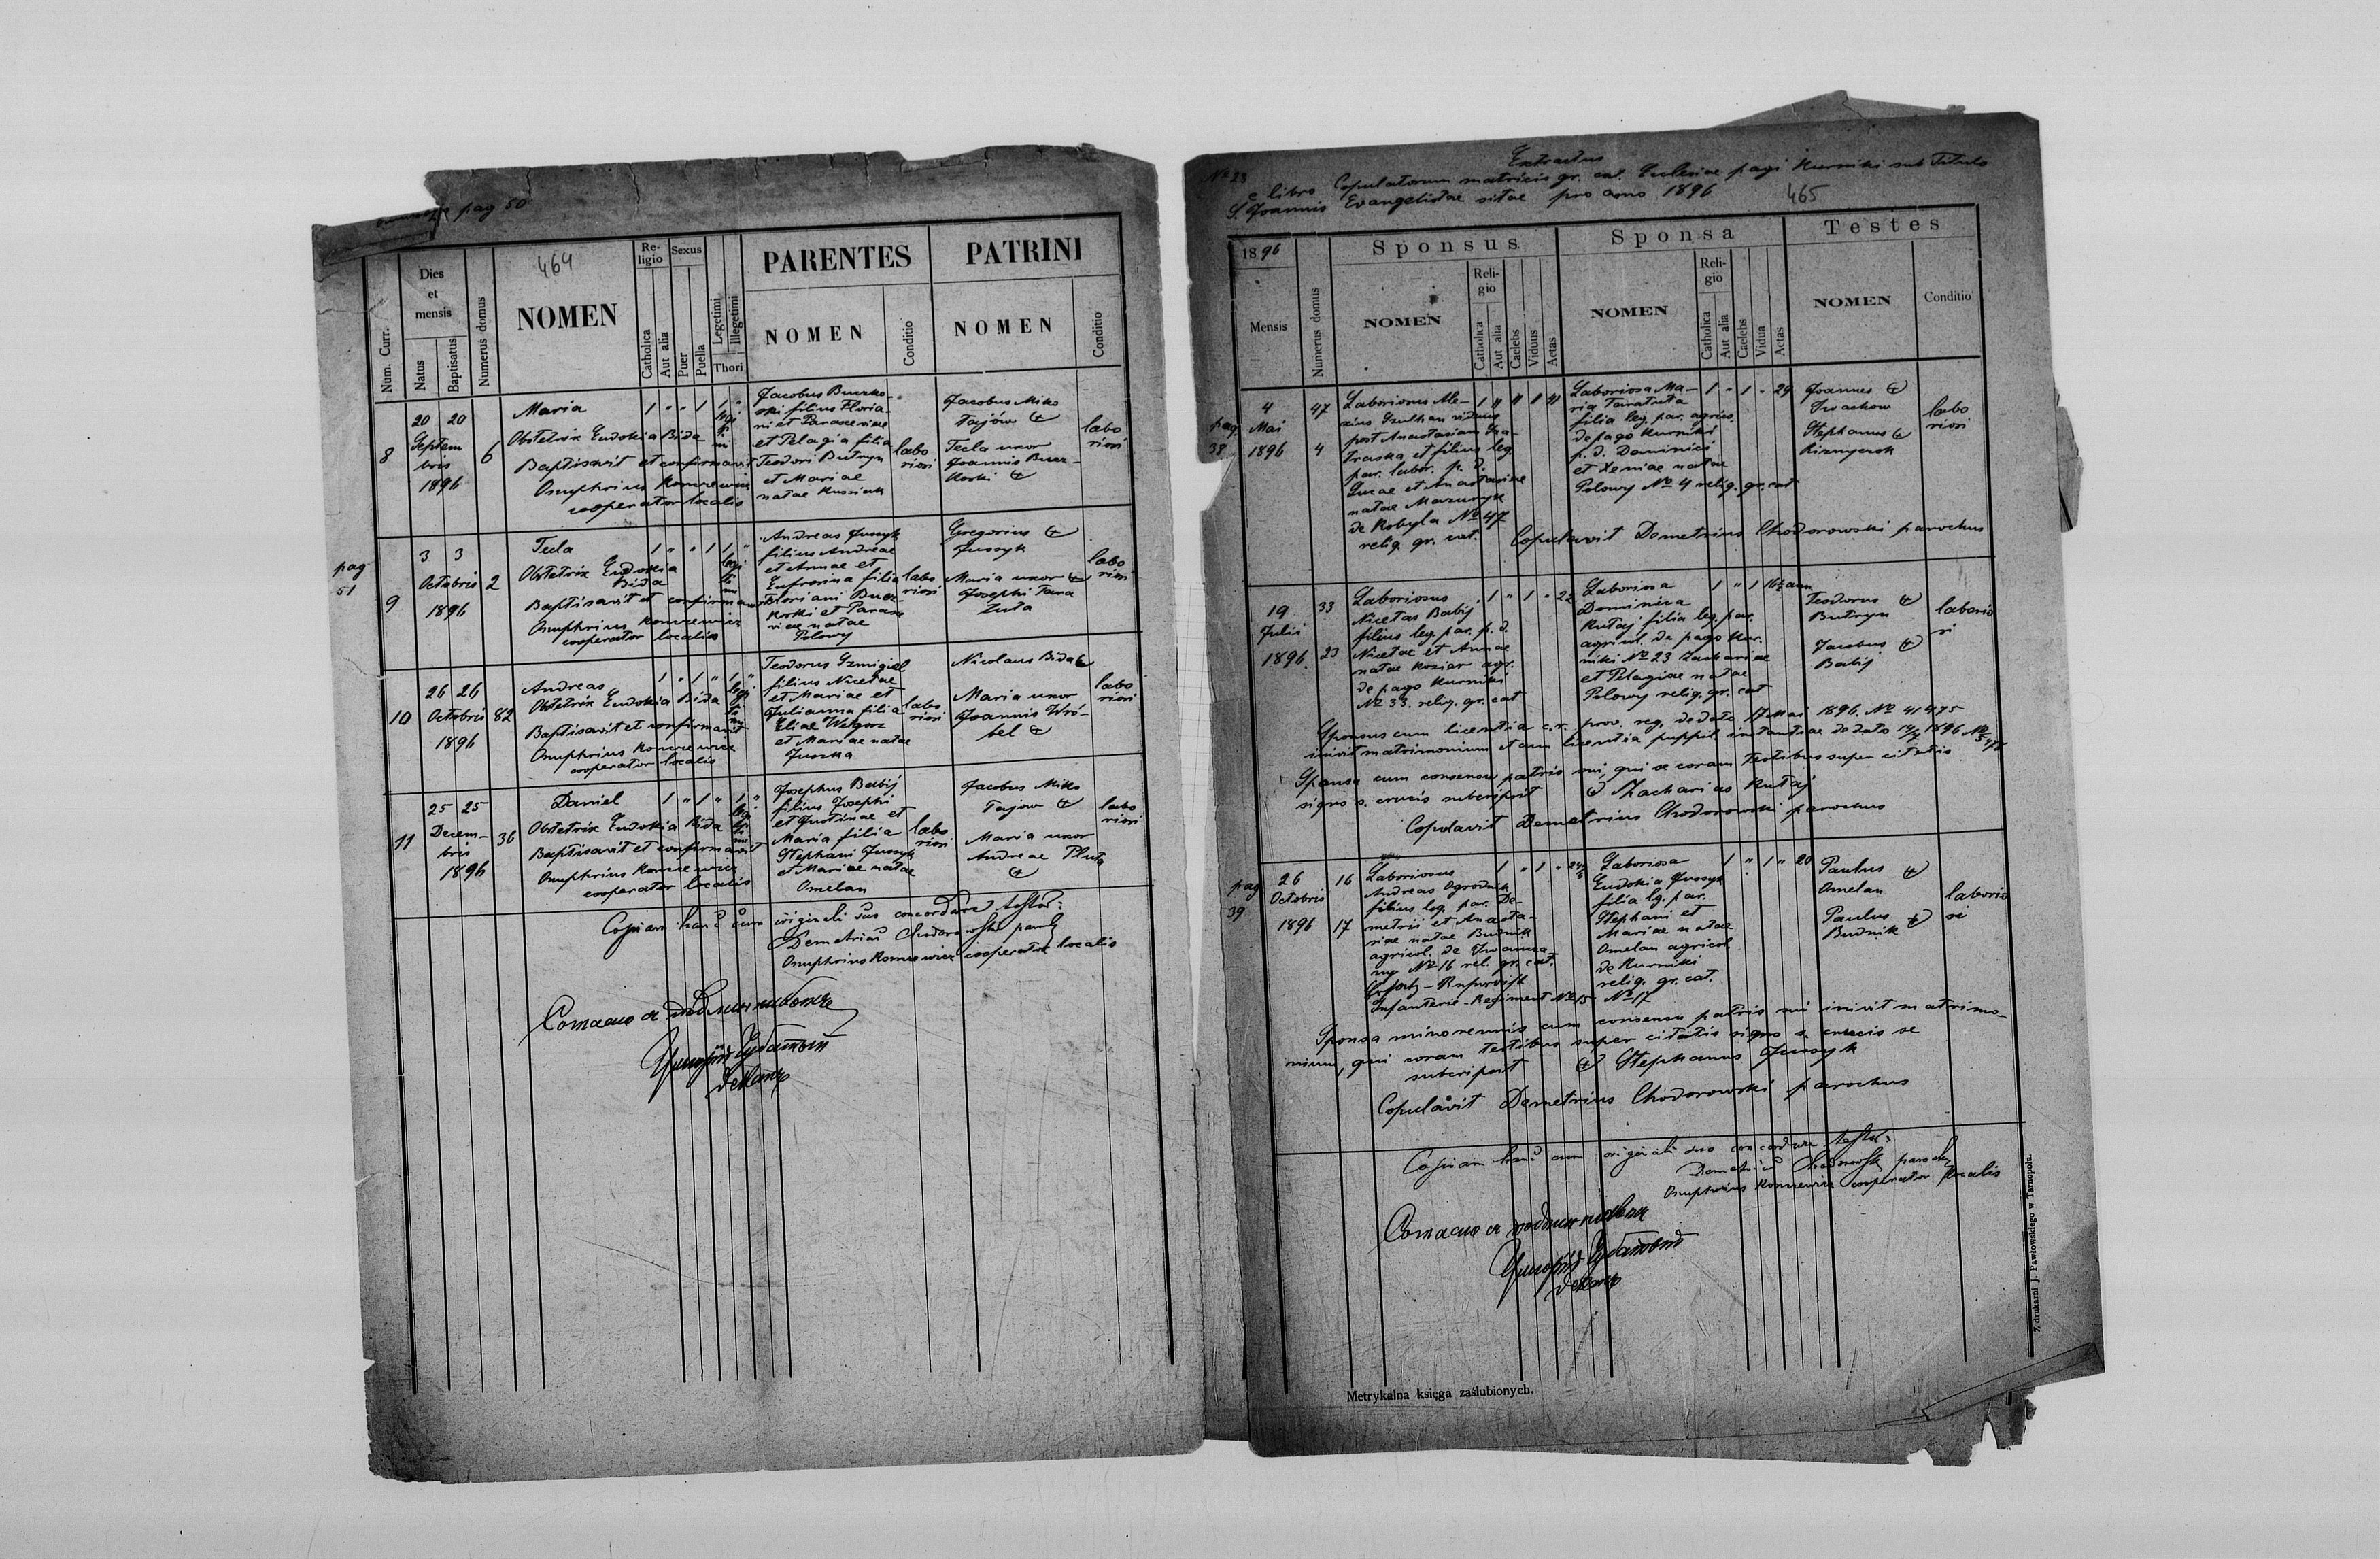 pag 50
464
Num. Curr.
Dies et mensis
Natus
Baptisatus
Numerus domus
NOMEN
Religio
Catholica
Aut alia
Sexus
Puer
Puella
Legetimi
Illegetimi
Thori
PARENTES
NOMEN
Conditio
PATRINI
NOMEN
Conditio
8
20 20
Septem
bris
1896
6
Maria
1 " " 1 1 "
legi
ti
mi
Obstetrix Eudokia Bida
Baptisavit et confirmavit
Onuphrius
cooperator localis
Jacobus Buczko-
ski filius Floria-
ni et Parasceviae
et Pelagia filia
Teodori Butryn
et Mariae
natae
labo
riosi
Jacobus Miko
Tajów
Tecla uxor
Joannis Bucz-
koski
labo
riosi
pag
51
9
3 3
Octobris
1896
2
Tecla
1 " " 1 1 "
legi
ti
mi
Obstetrix Eudokia
Bida
Baptisavit et confirmavit
Onuphrius
cooperator localis
Andreas Jussyk
filius Andreae
et Annae et
Eufrosina filia
Floriani Bucz-
koski et Parasce
viae natae
Polowy
labo
riosi
Gregorius
Jussyk
Maria uxor
Josephi Tara
Zuta
labo
riosi
10
26 26
Octobris
1896
82
Andreas
1 " 1 " 1 "
legi
ti
mi
Obstetrix Eudokia Bida
Baptisavit et confirmavit
Onuphrius
cooperator localis
Teodorus
filius Nicetae
et Mariae et
Julianna filia
Eliae
et Mariae natae
labo
riosi
Nicolaus Bida
Maria uxor
Joannis Wró-
bel
labo
riosi
11
25 25
Decem-
bris
1896
36
Daniel
1 " 1 " 1 "
legi
ti
mi
Obstetrix Eudokia Bida
Baptisavit et confirmavit
Onuphrius
cooperator localis
Josephus Babij
filius Josephi
et Justinae et
Maria filia
Stephani Jussyk
et Mariae natae
Omelan
labo
riosi
Jacobus Miko
Tajow
Maria uxor
Andreae Pluta
labo
riosi
Copiam hanc cum originali suo concordare testor:
Demetrius Chodorowski paroch
Onuphrius cooperator localis
№ 23
Extractus
e libro Copulatorum matricis gr. cat. Ecclesiae pagi Kurniki sub Titulo
S. Joannis Evangelistae sitae pro anno 1896
465
1896
Mensis
Numerus domus
Sponsus
NOMEN
Religio
Catholica
Aut alia
Caelebs
Viduus
Aetas
Sponsa
NOMEN
Religio
Catholica
Aut alia
Caelebs
Vidua
Aetas
Testes
NOMEN
Conditio
pag
38
4
Mai
1896
47
4
Laboriosus Ale-
xius viduus
post Anastasiam
et filius leg.
par. labor. p. d.
Lucae et Anastasiae
natae Mazuryk
de Kobyla № 47
relig. gr. cat.
Laboriosa Ma-
ria Taratuta
filia leg. par. agricol.
de pago Kurniki
p. d. Dominici
et Xeniae natae
Polowy № 4 relig. gr. cat
1 " 1 " 29
Joannes
Iwachow
Stephanus
labo
riosi
Copulavit Demetrius Chodorowski parochus
19
Julii
1896
33
23
Laboriosus
Nicetas Babij
filius leg. par. p. d.
Nicetae et Annae
natae Koziar agr.
de pago Kurniki
№ 33. relig. gr. cat
1 " 1 "
Laboriosa
Dominica
Kutaj filia leg. par.
agricol. de pago Kur-
niki № 23 Zachariae
et Pelagiae natae
Polowy relig. gr. cat
1 " 1
Teodorus
Butryn
Jacobus
Babij
laborio
si
Sponsus cum licentia c. r. prov. reg. de dato 17 Mai 1896. № 41475
inivit matrimonium et cum licentia puppil. instantiae de dato 1896
Sponsa cum consensu patris sui, qui se coram testibus super citatis
signo s. crucis subscripsit Zacharias Kutaj
Copulavit Demetrius Chodorowski parochus
pag
39
26
Octobris
1896
16
17
Laboriosus
Andreas Ogrodnik
filius leg. par. De-
metrii et Anasta-
siae natae Budnik
agricol. de
№ 16 rel. gr. cat.
Infanterie-Regiment № 15
Laboriosa
Eudokia Jussyk
filia lg. par.
Stephani et
Mariae natae
Omelan agricol.
de Kurniki
relig. gr. cat.
№ 17
1 " 1 " 20
Paulus
Omelan
Paulus
Budnik
laborio
si
Sponsa minorennis cum consensu patris sui inivit matrimo-
nium, qui coram testibus super citatis signo s. crucis se
subscripsit Stephanus Jussyk
Copulavit Demetrius Chodorowski parochus
Copiam hanc cum originali suo concordare testor:
Demetrius Chodorowski parochus
Onuphrius cooperator localis
Metrykalna księga zaślubionych.
Z drukarni J. Pawłowskiego w Tarnopolu.